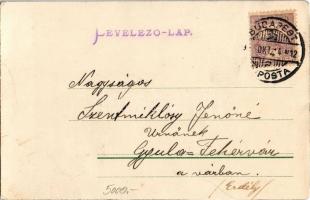 LEVELEZŐ-LAP.
BUDAPEST
POSTA
Nagyságos
Szentmiklósy Jenőné
Urnőnek
Gyula-Fehérvár
a várban.
(Erdély)
5000.-